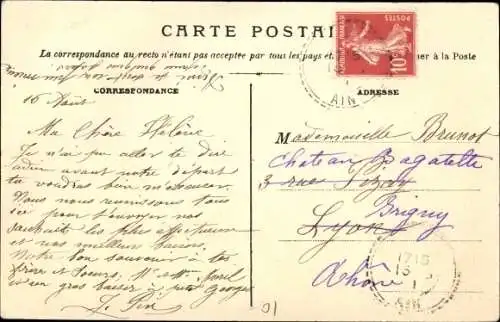 CARTE POSTAL
La correspondance au recto n'étant pas acceptée par tous les pays et
er à la Poste
CORRESPONDANCE
ADRESSE
POSTES
10
16 Août
Ma Chère Hélène
Je n'ai pu aller te dire
adieu avant notre départ
tu voudras bien m'excuser.
Nous nous réunissons tous
ici pour t'envoyer nos
souhaits les plus affectueux
et nos meilleurs baisers.
Notre bon souvenir à tes
frère et soeurs. Mr et Mme
gros baiser à petit Georges
Mademoiselle Brunot
Château Bagatelle
3 rue
Lyon
Brigny
Rhône
AIN
1715
16
AIN
01